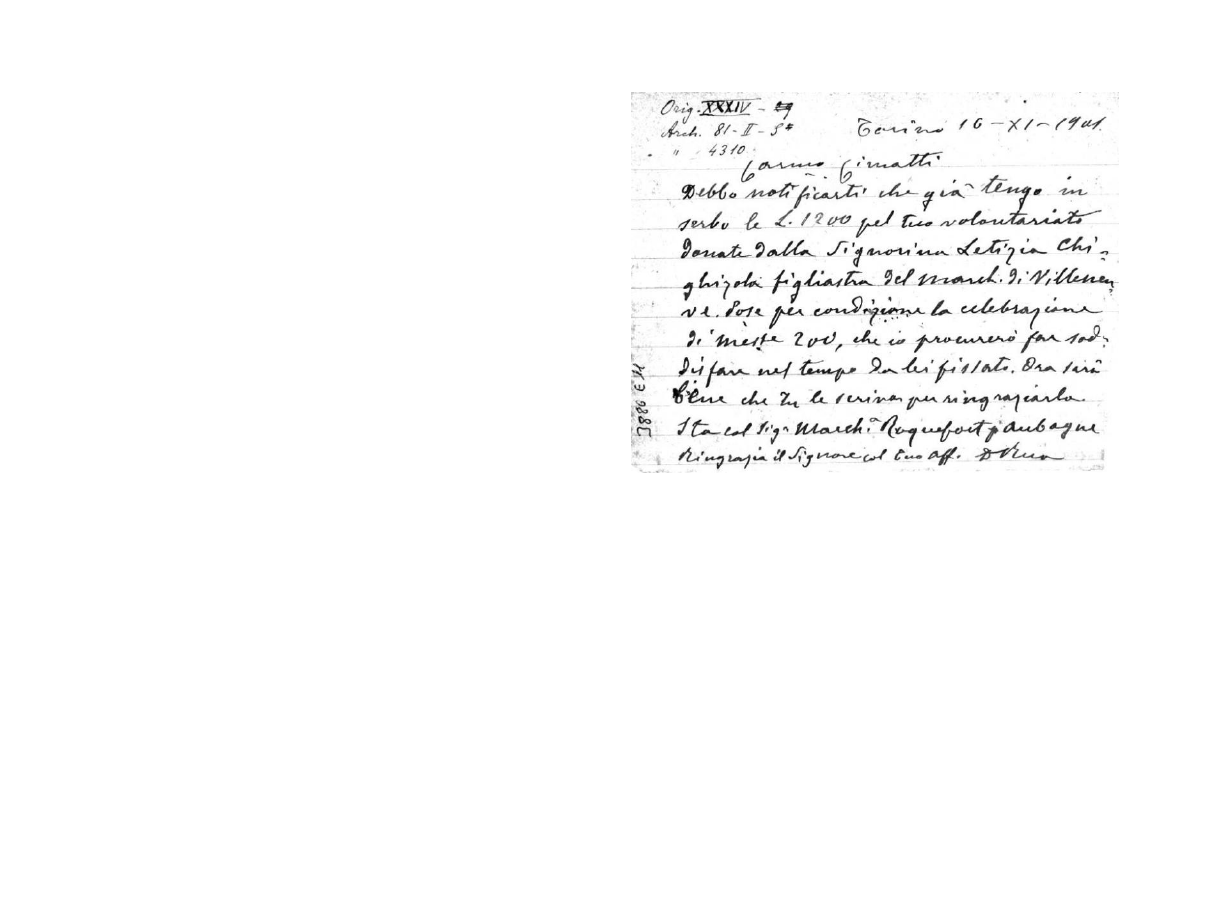 Orig. XXXIV - 29
Arch. 81-II-3*
" 4310
Torino 16-XI-1901.
Carmo Cimatti
Debbo notificarti che già tengo in
serbo le L. 1200 pel tuo volontariato
donate dalla Signorina Letizia Chi-
ghizola figliastra del March. di Villeneu-
ve. Pose per condizione la celebrazione
di messe 200, che io procurerò far sod-
disfare nel tempo da lei fissato. Ora sarà
bene che tu le scriva per ringraziarla.
Sta col Sigr March. Roquefort p Aubagne
Ringrazia il Signore col tuo aff. D Rua